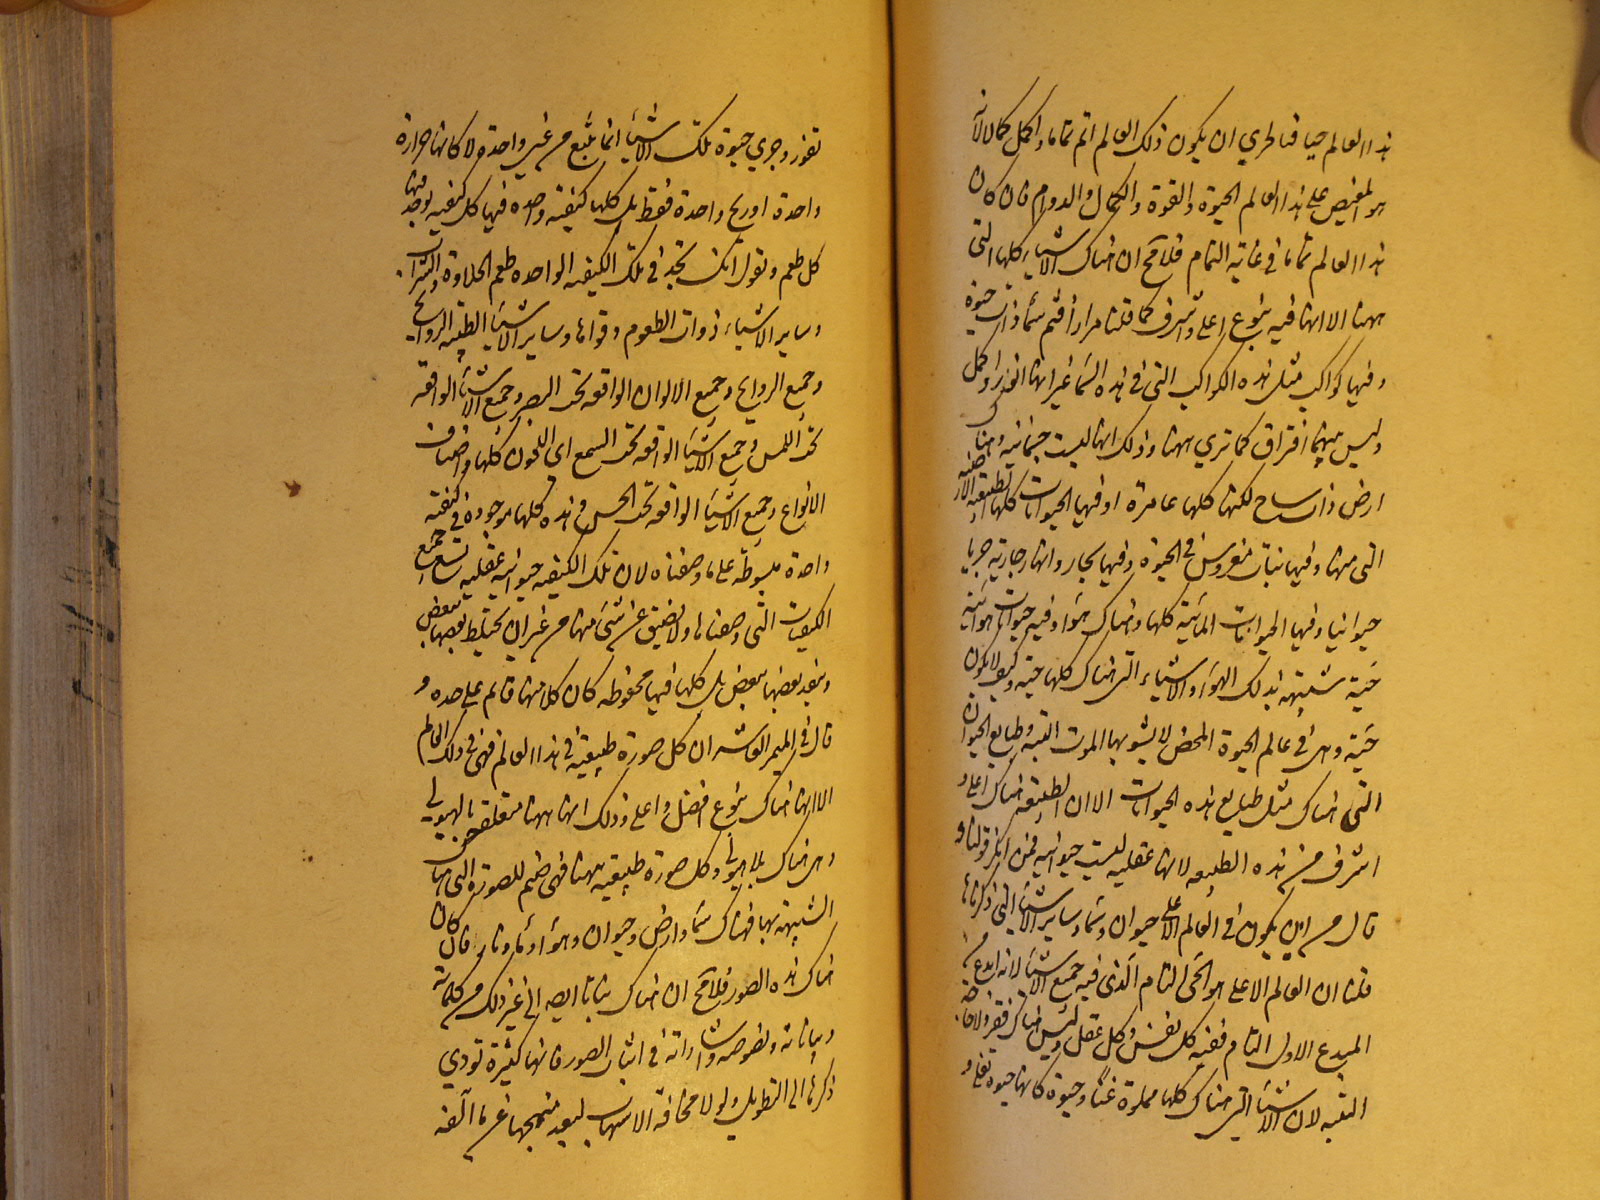 هذا العالم حيا فبالحري ان يكون ذلك العالم اتم تماما واكمل كمالا لانه
هو المفيض على هذا العالم الحيوة والقوة والكمال والدوام فان كان
هذا العالم تماما في غاية التمام فلا مح ان هناك الاشياء كلها التي
ههنا الا انها فيه بنوع اعلى واشرف كما قلنا مرارا فثم سماء ذات حيوة
وفيها كواكب مثل هذه الكواكب التي في هذه السماء غير انها انور واكمل
وليس بينهما افتراق كما نرى ههنا وذلك انها ليست جسمانية وهناك
ارض ذات سباخ لكنها كلها عامرة وفيها الحيوانات كلها الطبيعية الارضية
التي ههنا وفيها نبات مغروس في الحيوة وفيها بحار وانهار جارية جريا
حيوانيا وفيها الحيوانات المائية كلها وهناك هواء وفيه حيوانات هوائية
حية شبيهة بذلك الهواء والاشياء التي هناك كلها حية وكيف لا يكون
حية وهي في عالم الحيوة المحض لا يشوبها الموت البتة وطبايع الحيوان
التي هناك مثل طبايع هذه الحيوانات الا ان الطبيعة هناك اعلى و
اشرف من هذه الطبيعة لانها عقلية ليست حيوانية فمن انكر قولنا و
قال من اين يكون في العالم الاعلى حيوان وسماء وساير الاشياء التي ذكرناها
قلنا ان العالم الاعلى هو الحي التام الذي فيه جميع الاشياء لانه ابدع من
المبدع الاول التام ففيه كل نفس وكل عقل وليس هناك فقر ولا حاجة
البتة لان الاشياء التي هناك كلها مملوة غنا وحيوة كانها حيوة تغلي و
تفور وجري حيوة تلك الاشياء انما ينبع من عين واحدة لا كانها حرارة
واحدة او ريح واحدة فقط بل كلها كيفية واحدة فيها كل كيفية يوجد فيها
كل طعم ونقول انك تجد في تلك الكيفية الواحدة طعم الحلاوة والشراب
وساير الاشياء ذوات الطعوم وقواها وساير الاشياء الطيبة الروايح
وجميع الروايح وجميع الالوان الواقعة تحت البصر وجميع الاشياء الواقعة
تحت اللمس وجميع الاشياء الواقعة تحت السمع اي اللحون كلها واصناف
الانواع وجميع الاشياء الواقعة تحت الحس وهذه كلها موجودة في كيفية
واحدة مبسوطة على ما وصفناه لان تلك الكيفية حيوانية عقلية تسع جميع
الكيفيات التي وصفناها ولا يضيق عن شيء منها من غير ان يختلط بعضها ببعض
وينفد بعضها ببعض بل كلها فيها محفوظة كان كلا منها قائم على حده و
قال في الميمر العاشر ان كل صورة طبيعية في هذا العالم فهي في ذلك العالم
الا انها هناك بنوع افضل واعلى وذلك انها ههنا متعلقة بالهيولى
وهي هناك بلا هيولى وكل صورة طبيعية ههنا فهي صنم للصورة التي هناك
الشبيهة بها فهناك سماء وارض وحيوان وهواء وماء ونار فان كان
هناك هذه الصور فلا مح ان هناك نباتا ايضا الى غير ذلك من كلماته
وبياناته ونصوصه واشاراته في اثبات الصور فانها كثيرة تؤدي
ذكرها الى التطويل ولولا مخافة الاسهاب لبعد منهجها عن ما الفه